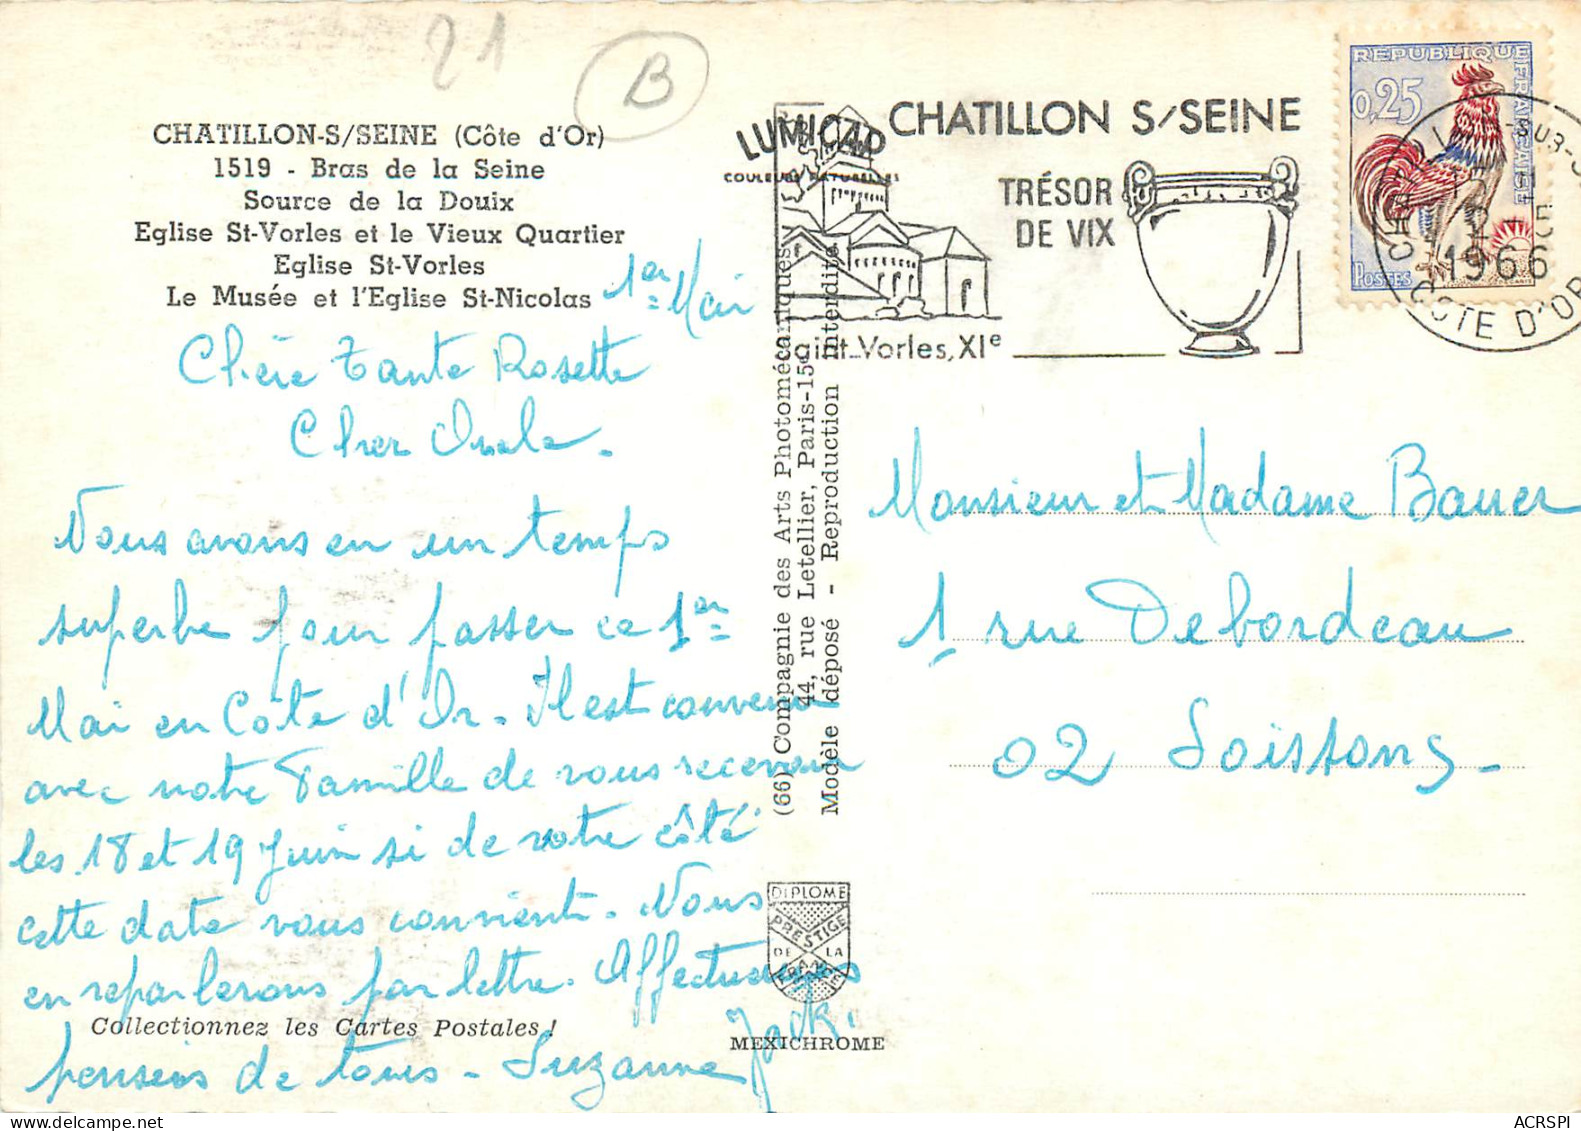 21
B
CHATILLON-S/SEINE (Côte d'Or)
1519 - Bras de la Seine
Source de la Douix
Eglise St-Vorles et le Vieux Quartier
Eglise St-Vorles
Le Musée et l'Eglise St-Nicolas
1er Mai
Chère Tante Rosette
Cher Oncle.
Nous avons eu un temps
superbe pour passer ce 1er
Mai en Côte d'Or. Il est convenu
avec notre Famille de vous recevoir
les 18 et 19 Juin si de votre côté
cette date vous convient. Nous
en reparlerons par lettre. Affectueuses
pensées de tous - Suzanne Jack.
Collectionnez les Cartes Postales !
LUMICAP
COULEURS NATURELLES
(66) Compagnie des Arts Photomécaniques
44, rue Letellier, Paris-15e
Modèle déposé - Reproduction interdite
DIPLOME
PRESTIGE
DE LA
FRANCE
MEXICHROME
CHATILLON S/SEINE
TRÉSOR
DE VIX
Saint-Vorles, XIe
REPUBLIQUE FRANÇAISE
0,25
POSTES
1966
COTE D'OR
Monsieur et Madame Bauer
1, rue Debordeau
02 Soissons-
ACRSPI